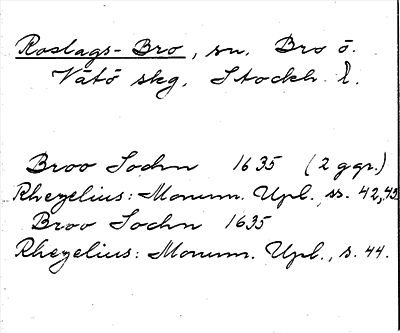 Roslags-Bro, sn. Bro ö.
Vätö skg. Stockh. l.
Broo Sochn 1635 (2 ggr.)
Rhezelius: Monum. Upl., ss. 42,43
Broo Sochn 1635
Rhezelius: Monum. Upl., s. 44.